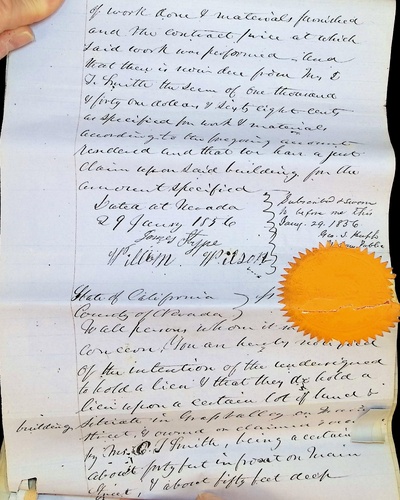 of work done & materials furnished
and the contract price at which
said work was performed and
that there is now due from Mrs
J. Smith the sum of One thousand
& forty one dollars & sixty eight cents
as specified for work & materials
according to the foregoing account
rendered and that we have a just
Claim upon said building for the
amount specified
Dated at Nevada
29 Jany 1856
William Wilson
Subscribed & sworn
to before me this
Jany. 29. 1856
Geo. S.
Notary Public
State of California
County of Nevada
To all persons whom it
concern. You are hereby
of the intention of the undersigned
to hold a lien & that they do hold a
lien upon a certain lot of land &
building situate in Grass Valley on
street, & owned or claimed
by Mrs. J Smith, being a certain
about forty feet in front on Main
Street, & about fifty feet deep